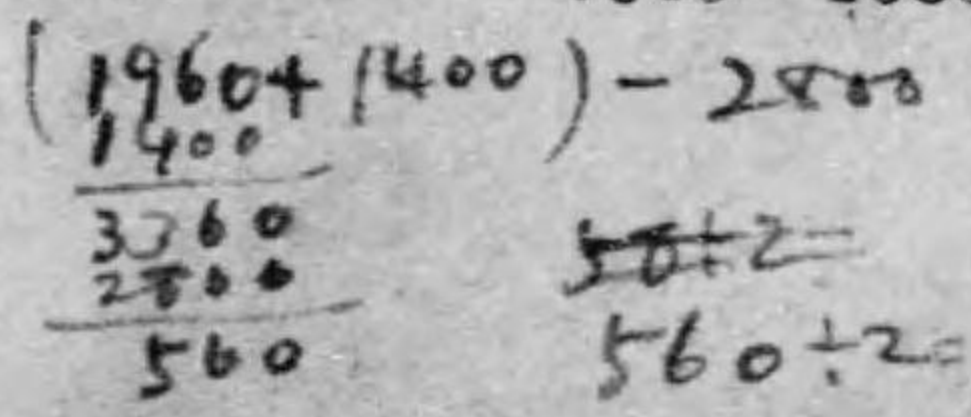 (1960+1400)-2800
1400
3360
2800
560
560÷2=